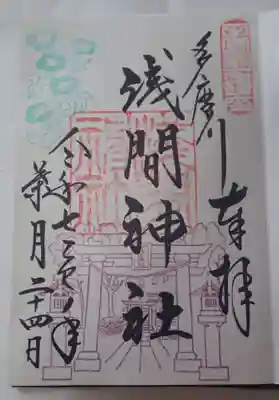 多摩川 奉拝
浅間神社
令和七年
葉月二十四日